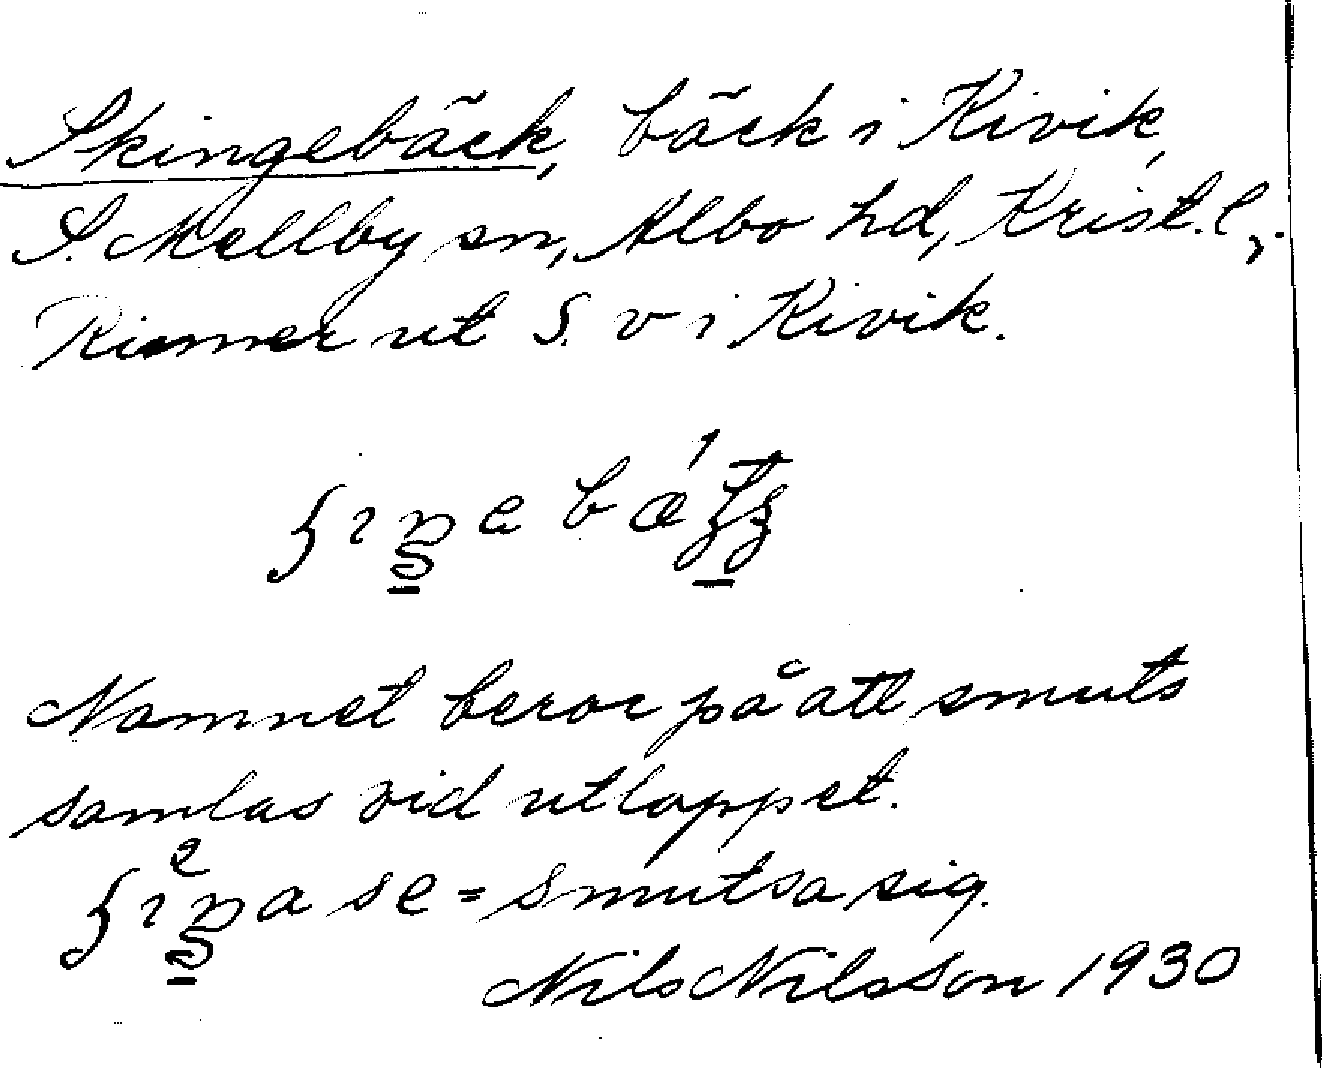 Skingebäck, bäck i Kivik,
S. Mellby sn, Albo hd, Krist. l,.
Rinner ut S. v i Kivik.
Namnet beror på att smuts
samlas vid utloppet.
= smutsa sig.
Nils Nilsson 1930